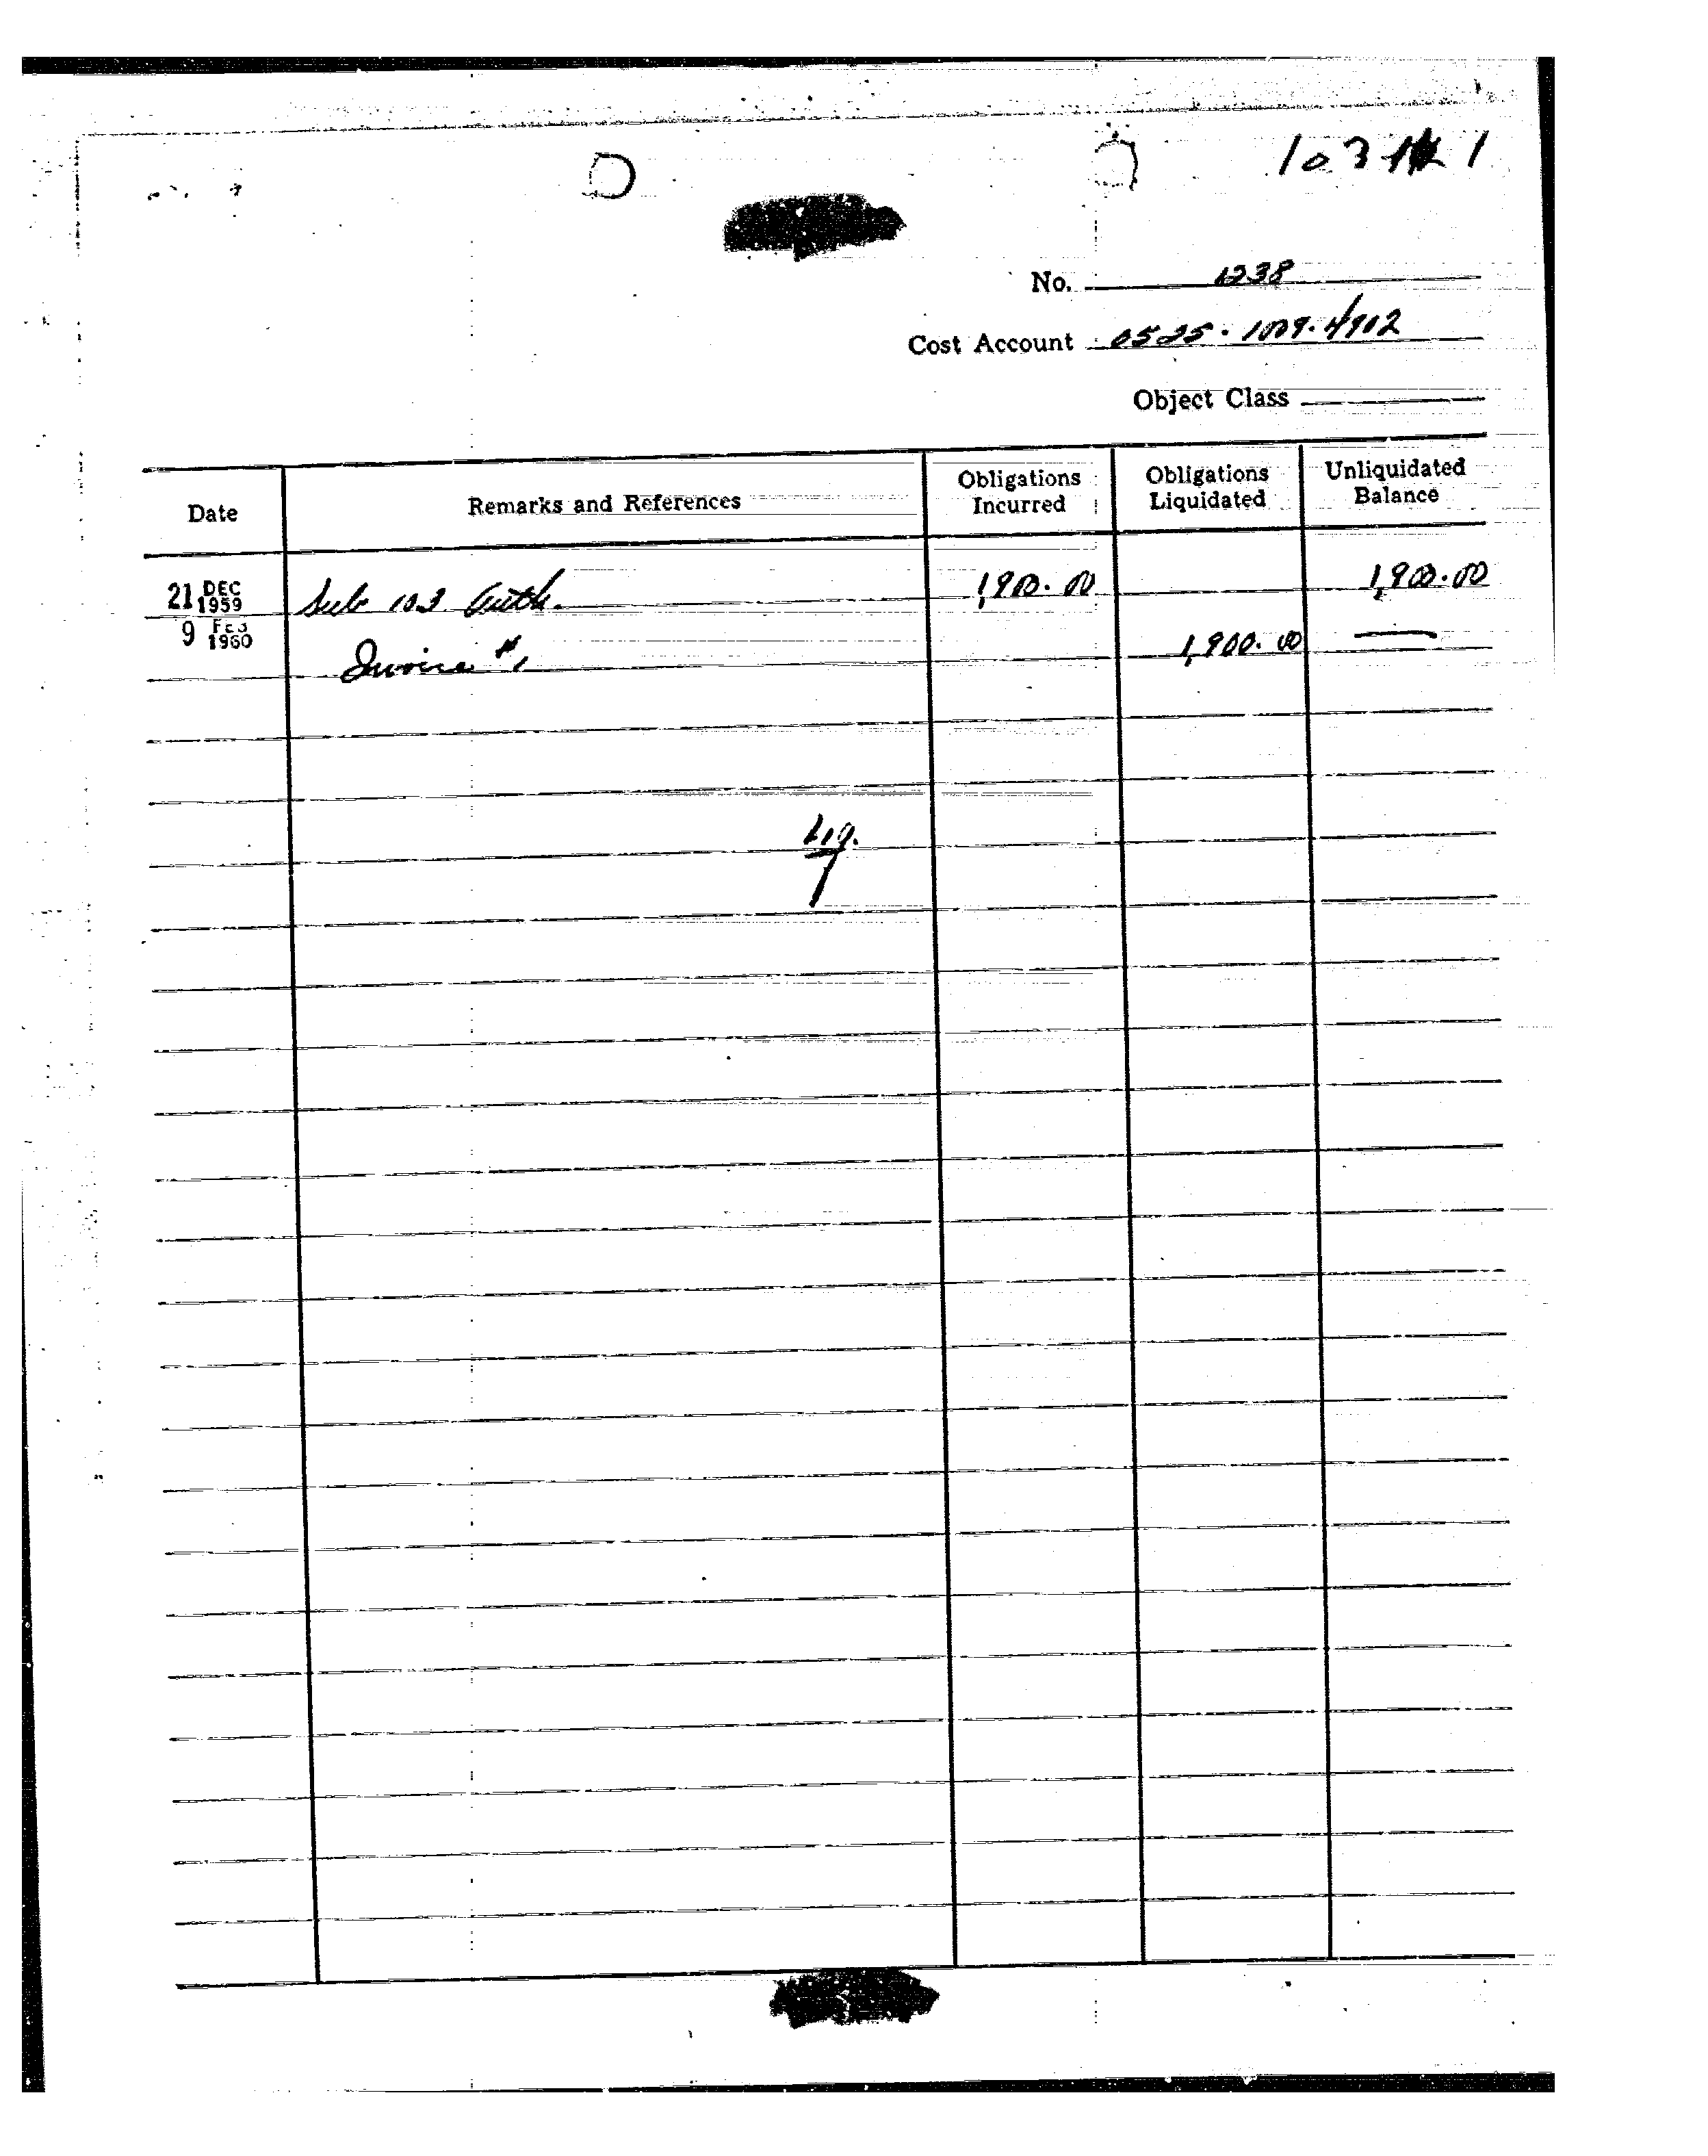 103 1
No. 1238
Cost Account 0525 · 1009 · 4902
Object Class
Date Remarks and References Obligations Incurred Obligations Liquidated Unliquidated Balance
21 DEC 1959 Sub 103 Auth. 1,900.00 1,900.00
9 FEB 1960 Invoice #1 1,900.00 —
Liq.